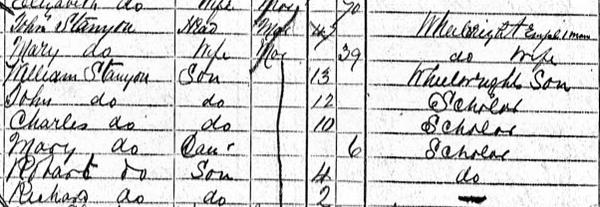 Elizabeth do Wife Mar 70
John Stanyon Head Mar Wheelwright Empl 1 man
Mary do Wife Mar 39 do Wife
William Stanyon Son 13 Wheelwright Son
John do do 12 Scholar
Charles do do 10 Scholar
Mary do Daur 6 Scholar
Robert do Son 4 do
Richard do do 2 —